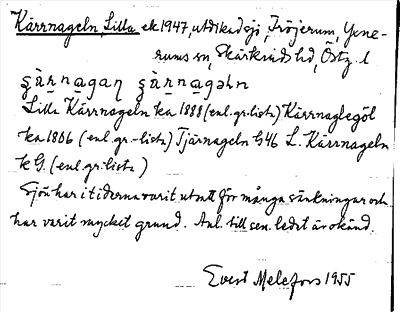 Kärrnageln, Lilla ek 1947, utdikad sjö, Fröjerum, Yene-
rums sn, Skärkinds hd, Östg. l
Lilla Kärrnageln ka 1888 (enl. gr. lista) Kärrnaglegöl
ka 1806 (enl. gr.-lista) Tjärnageln G46 L. Kärrnageln
k G. (enl. gr. lista)
Sjön har i tiderna varit utsatt för många sänkningar och
har varit mycket grund. Anl. till sen. ledet är okänd.
Evert Melefors 1955